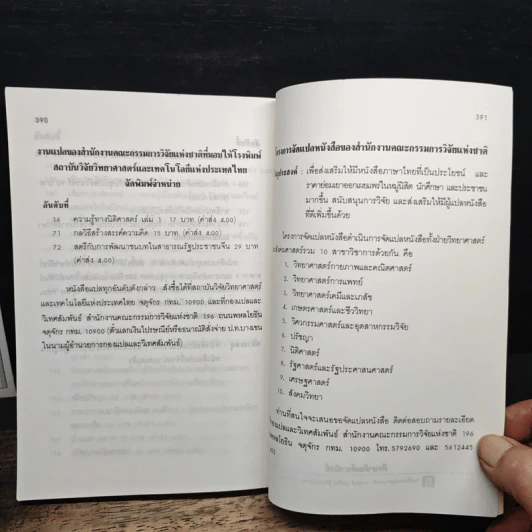 390
งานแปลของสำนักงานคณะกรรมการวิจัยแห่งชาติที่มอบให้โรงพิมพ์
สถาบันวิจัยวิทยาศาสตร์และเทคโนโลยีแห่งประเทศไทย
จัดพิมพ์จำหน่าย
อันดับที่
ความรู้ทางนิติศาสตร์ เล่ม 1 37 บาท (ค่าส่ง 4.00)
กลวิธีสร้างสรรค์ความคิด 15 บาท (ค่าส่ง 4.00)
72 สตรีกับการพัฒนาชนบทในสาธารณรัฐประชาชนจีน 29 บาท
(ค่าส่ง 4.00)
หนังสือแปลทุกอันดับดังกล่าว สั่งซื้อได้ที่สถาบันวิจัยวิทยาศาสตร์
และเทคโนโลยีแห่งประเทศไทย จตุจักร กทม. 10900 และที่กองแปลและ
วิเทศสัมพันธ์ สำนักงานคณะกรรมการวิจัยแห่งชาติ 196 ถนนพหลโยธิน
จตุจักร กทม. 10900 (ตั๋วแลกเงินไปรษณีย์หรือธนาณัติสั่งจ่าย ป.ท.บางเขน
ในนามผู้อำนวยการกองแปลและวิเทศสัมพันธ์)
391
โครงการจัดแปลหนังสือของสำนักงานคณะกรรมการวิจัยแห่งชาติ
: เพื่อส่งเสริมให้มีหนังสือภาษาไทยที่เป็นประโยชน์ และ
ราคาย่อมเยาออกเผยแพร่ในหมู่นิสิต นักศึกษา และประชาชน
มากขึ้น สนับสนุนการวิจัย และส่งเสริมให้มีผู้แปลหนังสือ
ที่ดีเพิ่มขึ้นด้วย
โครงการจัดแปลหนังสือดำเนินการจัดแปลหนังสือทั้งฝ่ายวิทยาศาสตร์
รวม 10 สาขาวิชาการด้วยกัน คือ
1. วิทยาศาสตร์กายภาพและคณิตศาสตร์
2. วิทยาศาสตร์การแพทย์
3. วิทยาศาสตร์เคมีและเภสัช
4. เกษตรศาสตร์และชีววิทยา
5. วิศวกรรมศาสตร์และอุตสาหกรรมวิจัย
6. ปรัชญา
7. นิติศาสตร์
8. รัฐศาสตร์และรัฐประศาสนศาสตร์
9. เศรษฐศาสตร์
10. สังคมวิทยา
ท่านที่สนใจจะเสนอขอจัดแปลหนังสือ ติดต่อสอบถามรายละเอียด
กองแปลและวิเทศสัมพันธ์ สำนักงานคณะกรรมการวิจัยแห่งชาติ 196
จตุจักร กทม. 10900 โทร.5792690 และ 5612445